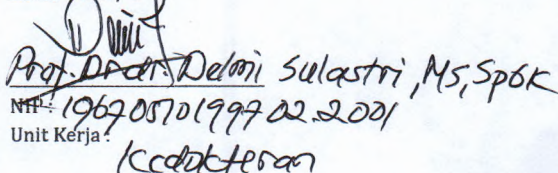 Prof. Dr. dr. Delmi Sulastri, MS, SpGK
NIP : 196705101997 02.2001
Unit Kerja :
Kedokteran